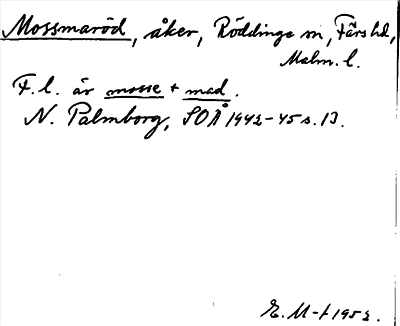 Mossmaröd, åker, Röddinge sn, Färs hd,
Malm. l.
F. l. är mosse + mad.
N. Palmborg, SOÅ 1942-45 s. 13.
E. M-t 1952.